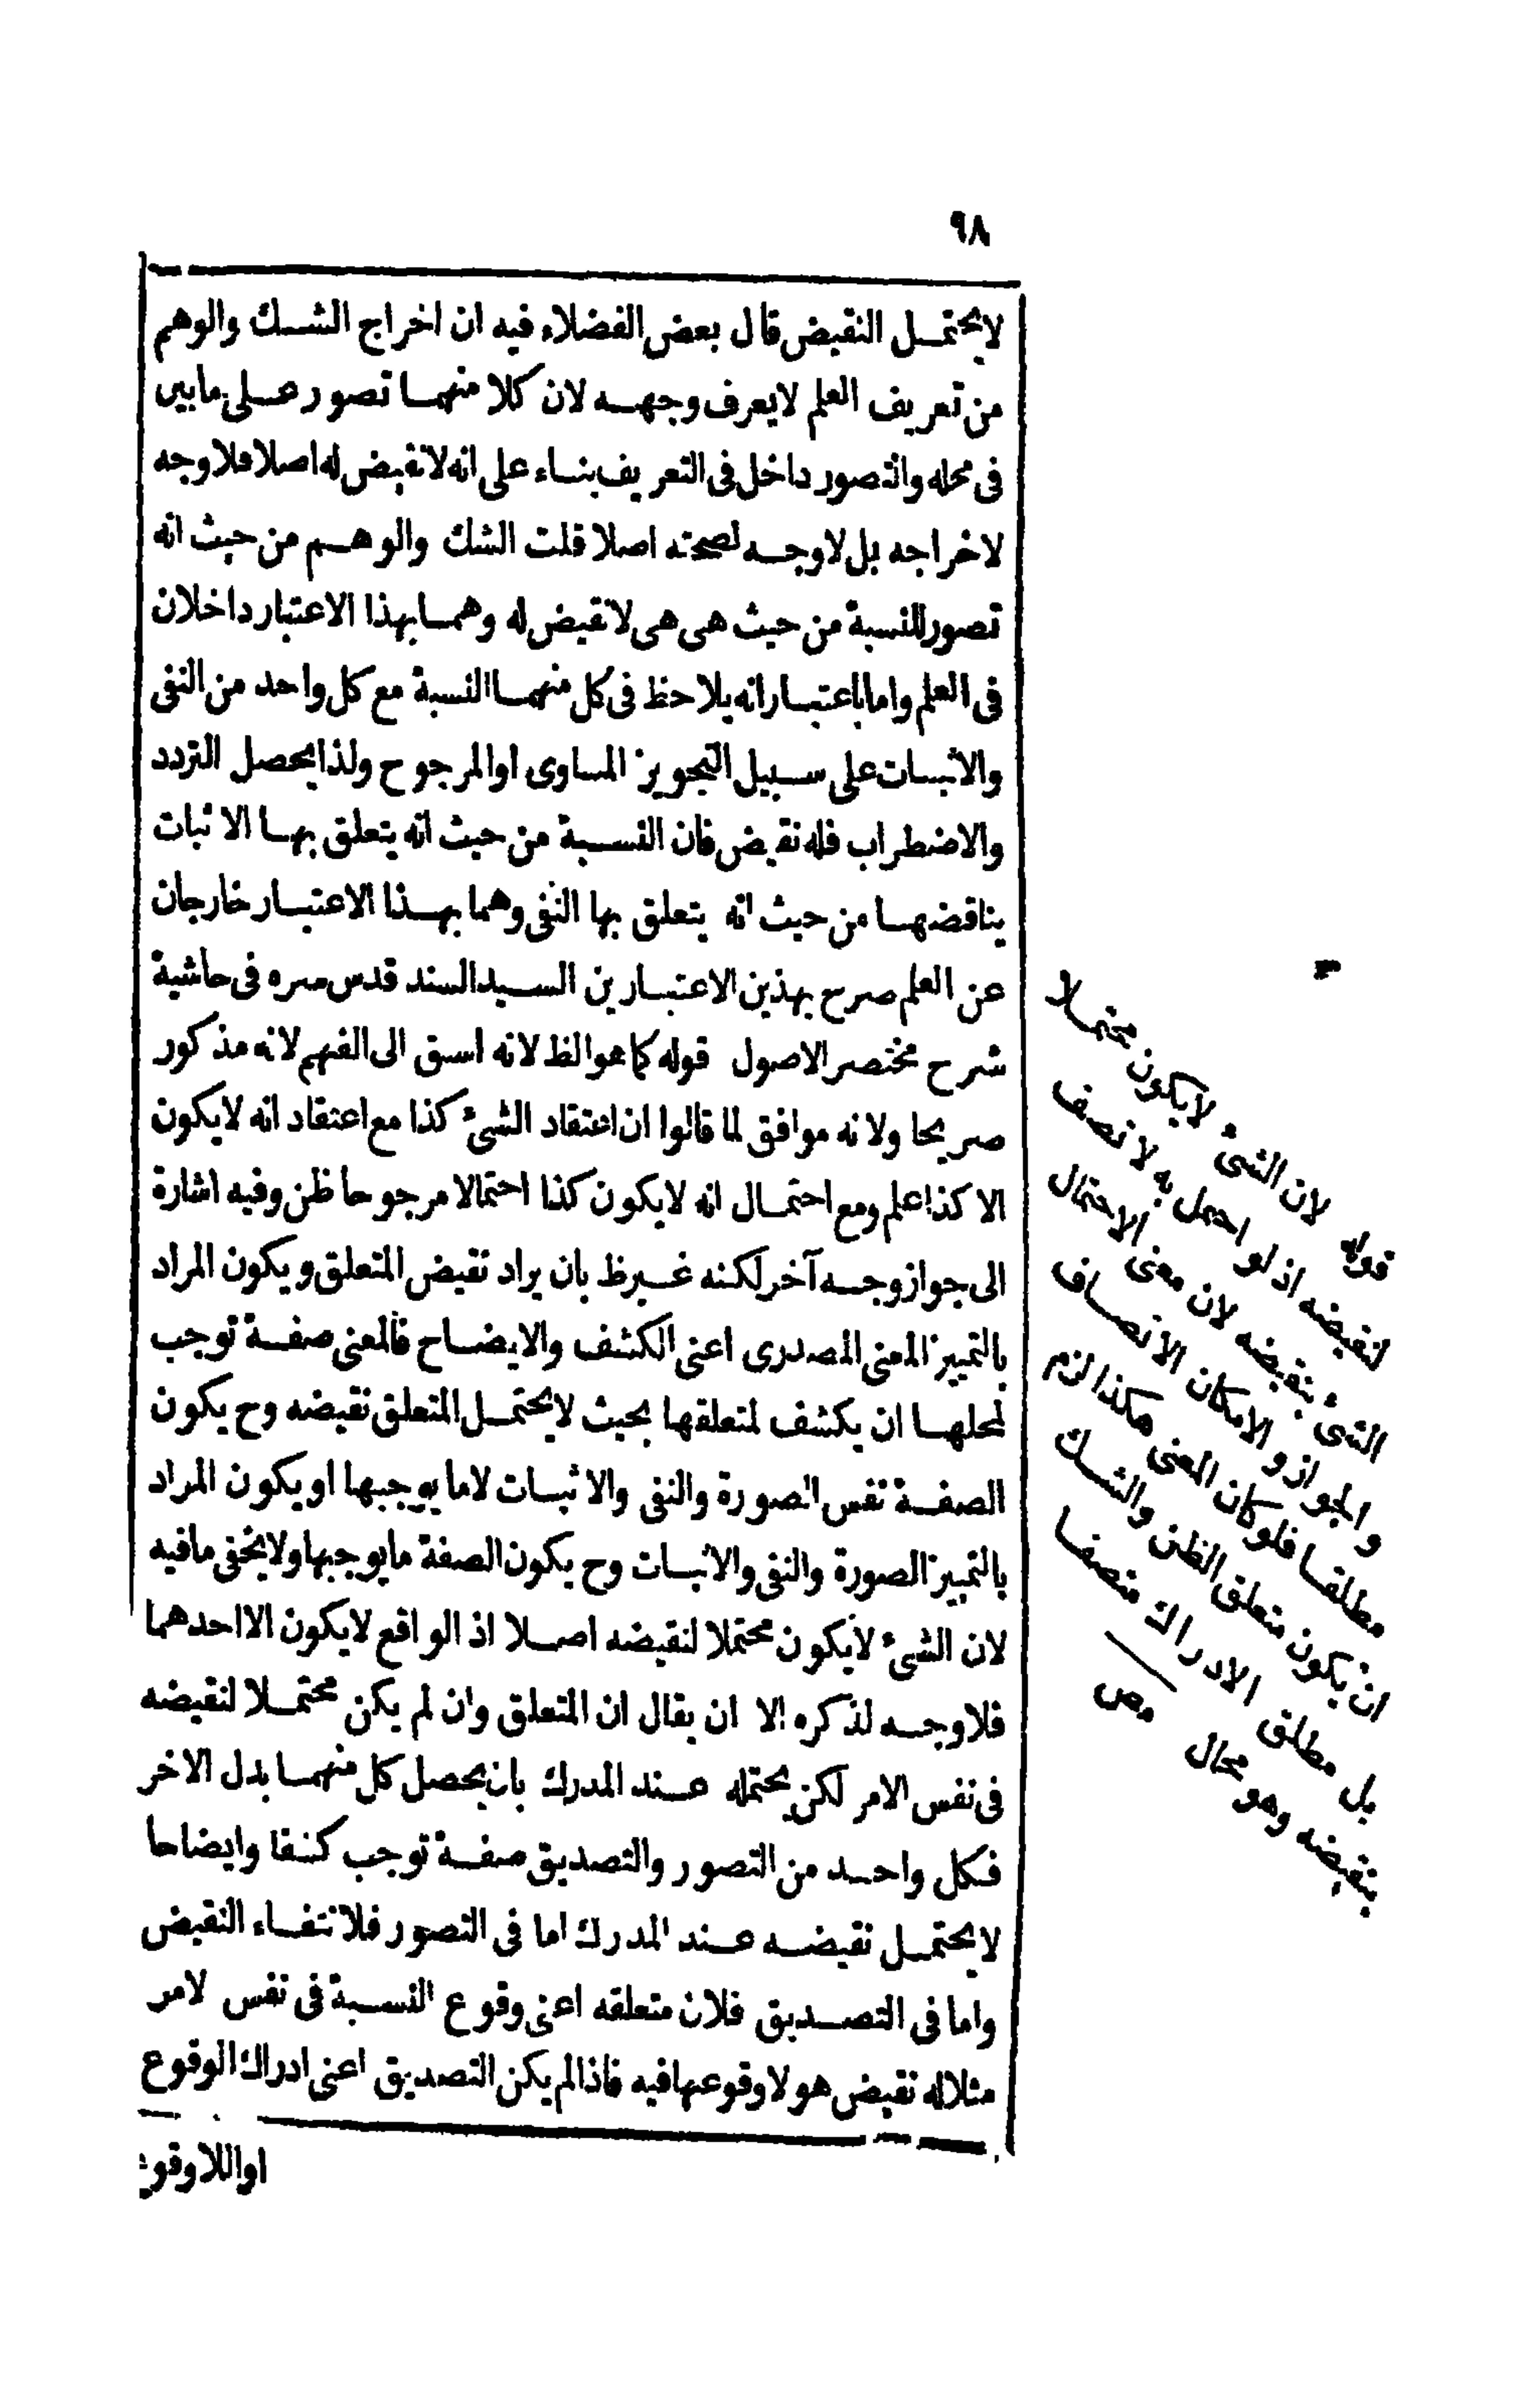 ٩٨
لا يحتمل النقيض قال بعض الفضلاء فيه ان اخراج الشك والوهم
من تعريف العلم لايعرف وجهه لان كلا منهما تصور على مابين
فى محله والتصور داخل فى التعريف بناء على انه لانقيض له اصلا فلاوجه
لاخراجه بل لاوجه لصحته اصلا قلت الشك والوهم من حيث انه
تصور للنسبة من حيث هى هى لانقيض له وهما بهذا الاعتبار داخلان
فى العلم واما باعتبار انه يلاحظ فى كل منهما النسبة مع كل واحد من النفى
والاثبات على سبيل التجويز المساوى او المرجوح ولذا يحصل التردد
والاضطراب فله نقيض فان النسبة من حيث انه يتعلق بها الاثبات
يناقضها من حيث انه يتعلق بها النفى وهما بهذا الاعتبار خارجان
عن العلم صرح بهذين الاعتبارين السيد السند قدس سره فى حاشية
شرح مختصر الاصول قوله كما هو الظ لانه اسبق الى الفهم لانه مذكور
صريحا ولانه موافق لما قالوا ان اعتقاد الشئ كذا مع اعتقاد انه لايكون
الا كذا علم ومع احتمال انه لايكون كذا احتمالا مرجوحا ظن وفيه اشارة
الى جواز وجه آخر لكنه غير ظ بان يراد نقيض المتعلق ويكون المراد
بالتمييز المعنى المصدرى اعنى الكشف والايضاح فالمعنى صفة توجب
لمحلها ان يكشف لمتعلقها بحيث لايحتمل المتعلق نقيضه وح يكون
الصفة نفس الصورة والنفى والاثبات لاما يوجبها او يكون المراد
بالتمييز الصورة والنفى والاثبات وح يكون الصفة مايوجبها ولايخفى مافيه
لان الشئ لايكون محتملا لنقيضه اصلا اذ الواقع لايكون الا احدهما
فلاوجه لذكره الا ان يقال ان المتعلق وان لم يكن محتملا لنقيضه
فى نفس الامر لكن يحتمله عند المدرك بان يحصل كل منهما بدل الاخر
فكل واحد من التصور والتصديق صفة توجب كشفا وايضاحا
لا يحتمل نقيضه عند المدرك اما فى التصور فلانتفاء النقيض
واما فى التصديق فلان متعلقه اعنى وقوع النسبة فى نفس لامر
مثلا له نقيض هو لاوقوعها فيه فاذا لم يكن التصديق اعنى ادراك الوقوع
او اللاوقو
٣
قوله لان الشئ لايكون محتملا
لنقيضه اذ لو احتمل به لاتصف
الشئ بنقيضه لان معنى الاحتمال
والجواز والامكان الاتصاف
مطلقا فلو كان المعنى هكذا لزم
ان يكون متعلق الظن والشك
بل مطلق الادراك متصفا
بنقيضه وهو محال مص